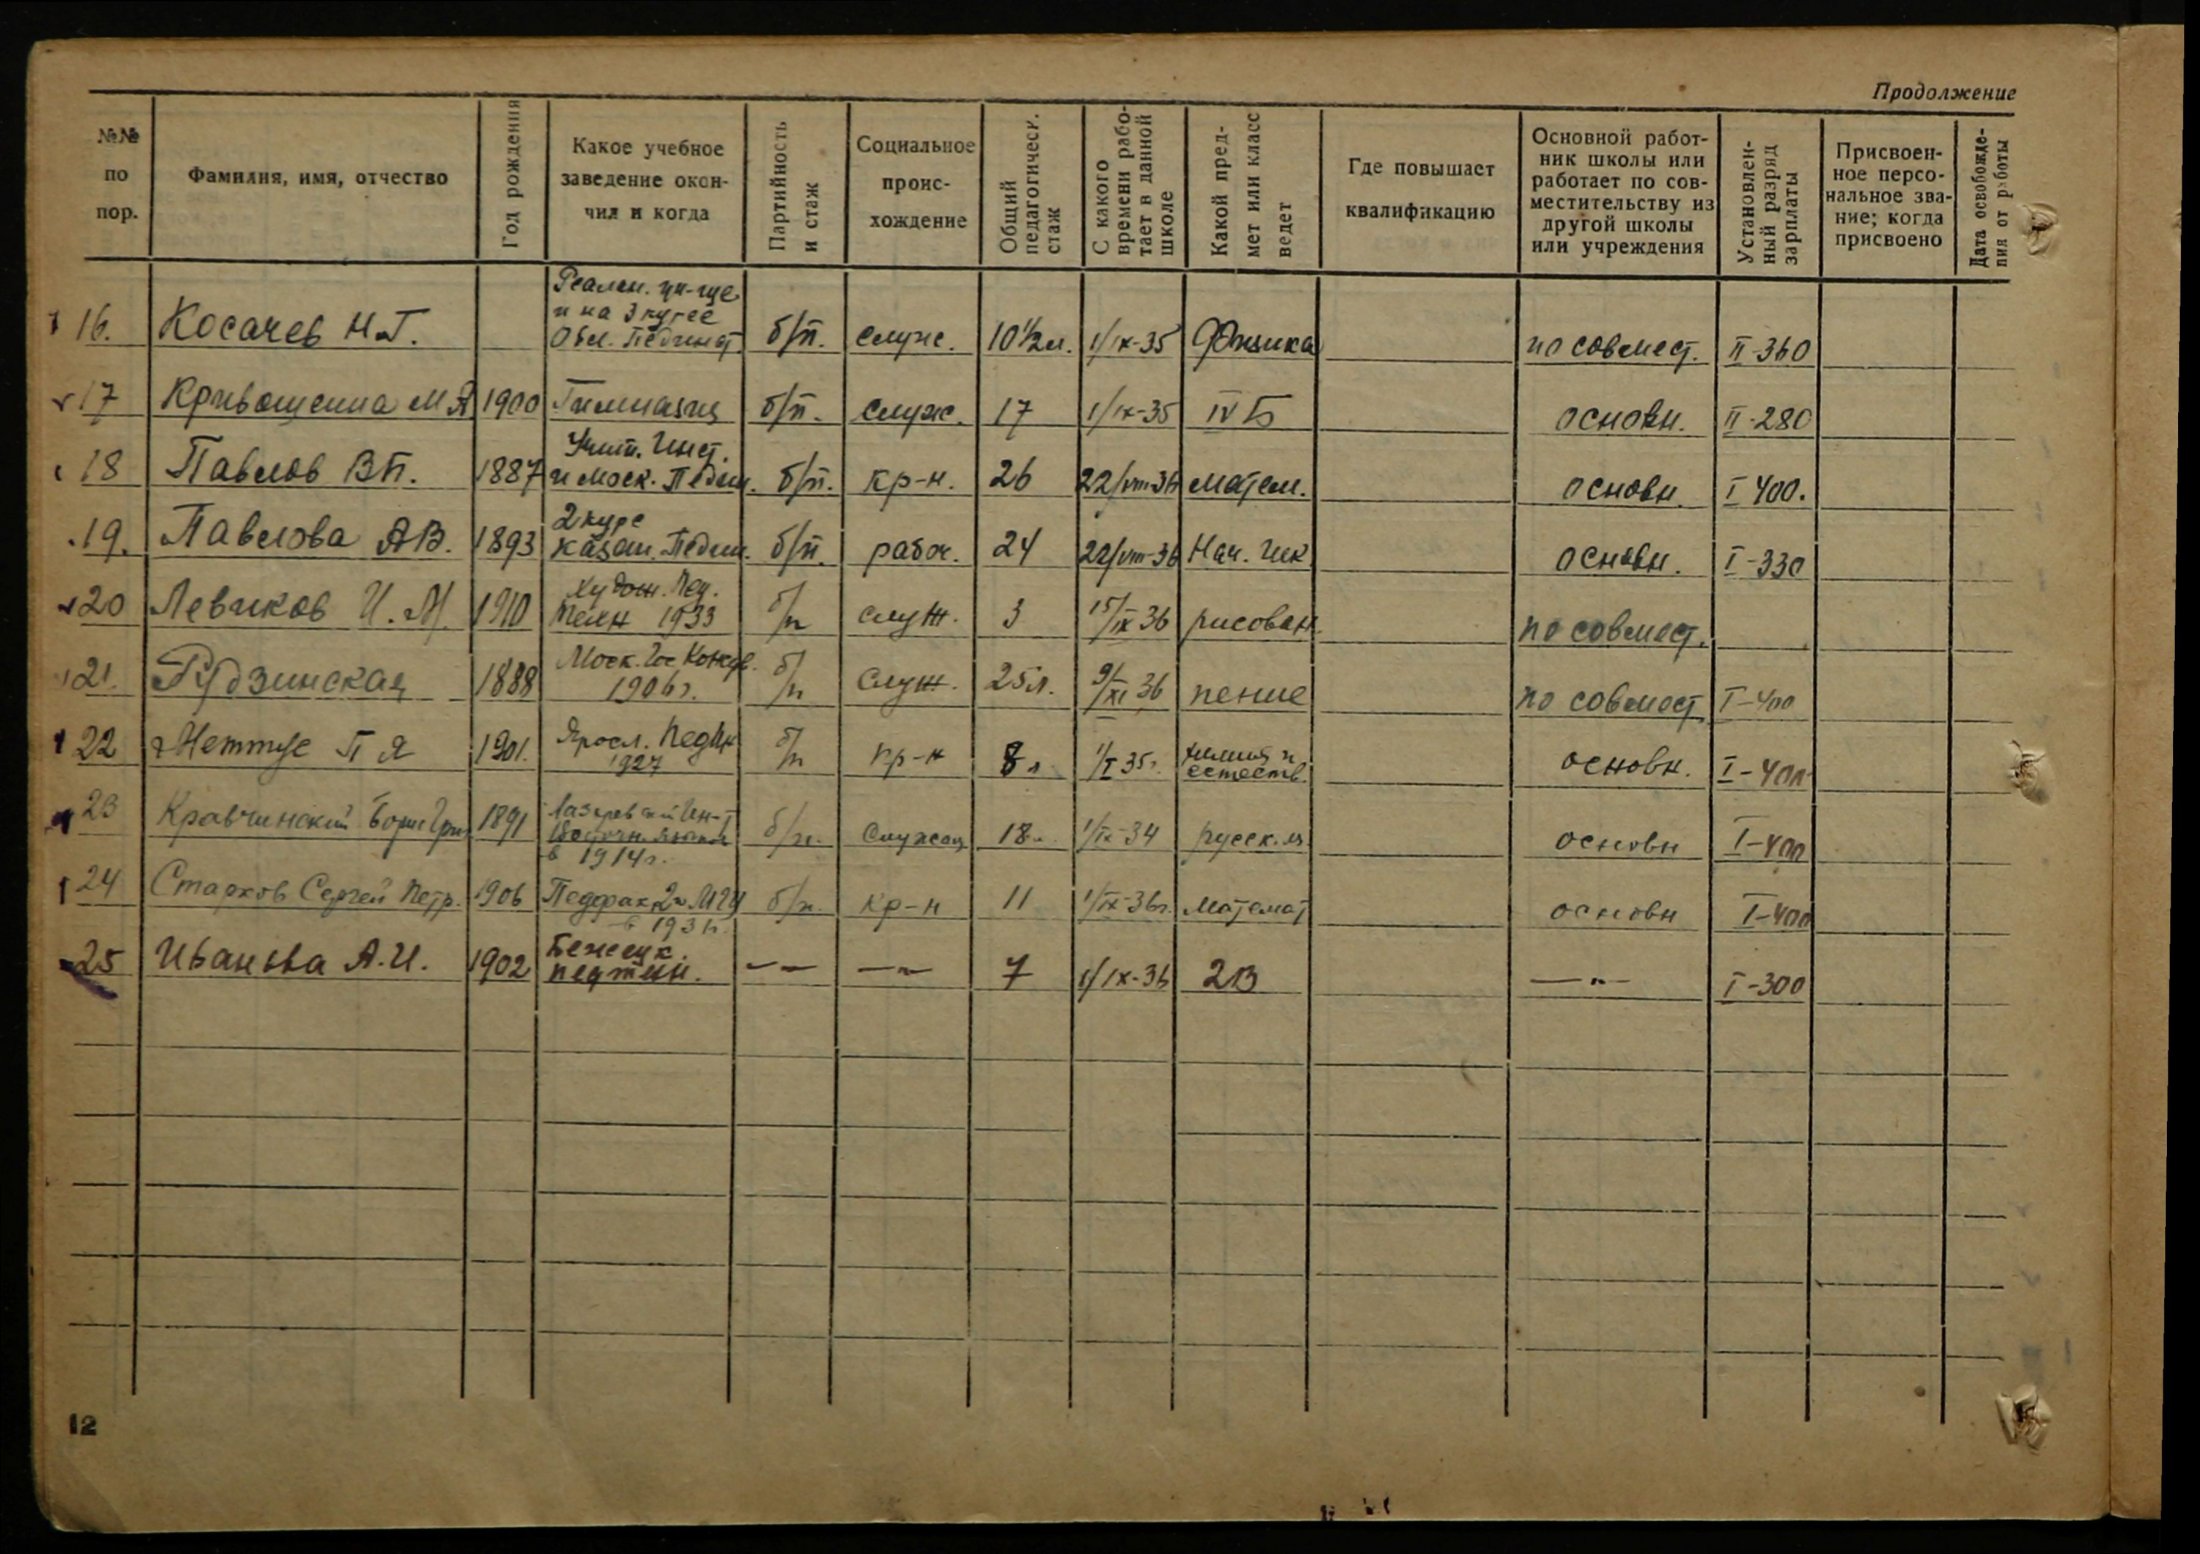 Продолжение
№№ по пор.
Фамилия, имя, отчество
Год рождения
Какое учебное заведение окон-чил и когда
Партийность и стаж
Социальное проис-хождение
Общий педагогическ. стаж
С какого времени рабо-тает в данной школе
Какой пред-мет или класс ведет
Где повышает квалификацию
Основной работ-ник школы или работает по сов-местительству из другой школы или учреждения
Установлен-ный разряд зарплаты
Присвоен-ное персо-нальное зва-ние; когда присвоено
Дата освобожде-ния от работы
16. Косачев Н.Г. Реальн. уч-ще и на 3 курсе Обл. Пединст. б/п. служ. 10 1/2 л. 1/IX-35 Физика по совмест. II-360
17 Кривошеина М Я 1900 Гимназия б/п. служ. 17 1/IX-35 IV Б основн. II-280
18 Павлов В П. 1887 Учит. Инст. и Моск. Педин. б/п. кр-н. 26 22/VIII-36 матем. основн. I 400.
19. Павлова А В. 1893 2 курс Казан. Педин. б/п. рабоч. 24 22/VIII-36 Нач. шк основн. I-330
20 Левиков И. М. 1910 Худож. Пед. Техн 1933 б/п служ. 3 15/IX 36 рисован. по совмест.
21. Рудзинская 1888 Моск. Гос Консерв. 1906 г. б/п служ. 25 л. 9/XI 36 пение по совмест I-400
22 П Я 1901. Яросл. Пед Ин 1927 б/п кр-н 8 л 1/I 35 г. химия и естеств. основн. I-400
23 Кравчинский Борис Григ 1891 Лазаревский Ин-т Восточн. языков в 1914 г. б/п. служащ 18 л 1/IX-34 русск. яз основн I-400
24 Старков Сергей Петр. 1906 Педфак 2го МГУ в 1931 г. б/п. кр-н 11 1/IX-36 г. Математ основн I-400
25 Иванова А. И. 1902 Бежецк. педтехн. — „ — — „ — 7 1/IX-36 2 В — „ — I-300
12